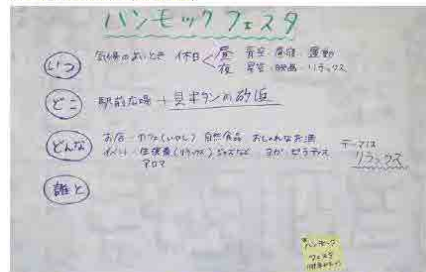 ハンモックフェスタ
いつ 気候のよいとき 休日 昼 青空・音楽・運動
夜 星空・映画・リラックス
どこ 駅前広場 → 貝キタン川砂浜
どんな お店 カフェ(いやし) 自然食品 おしゃれなお酒
イベント 生演奏(リラックス) ジャズなど ヨガ・ピラティス
アロマ
テーマは
リラックス
誰と
ハンモック
フェスタ